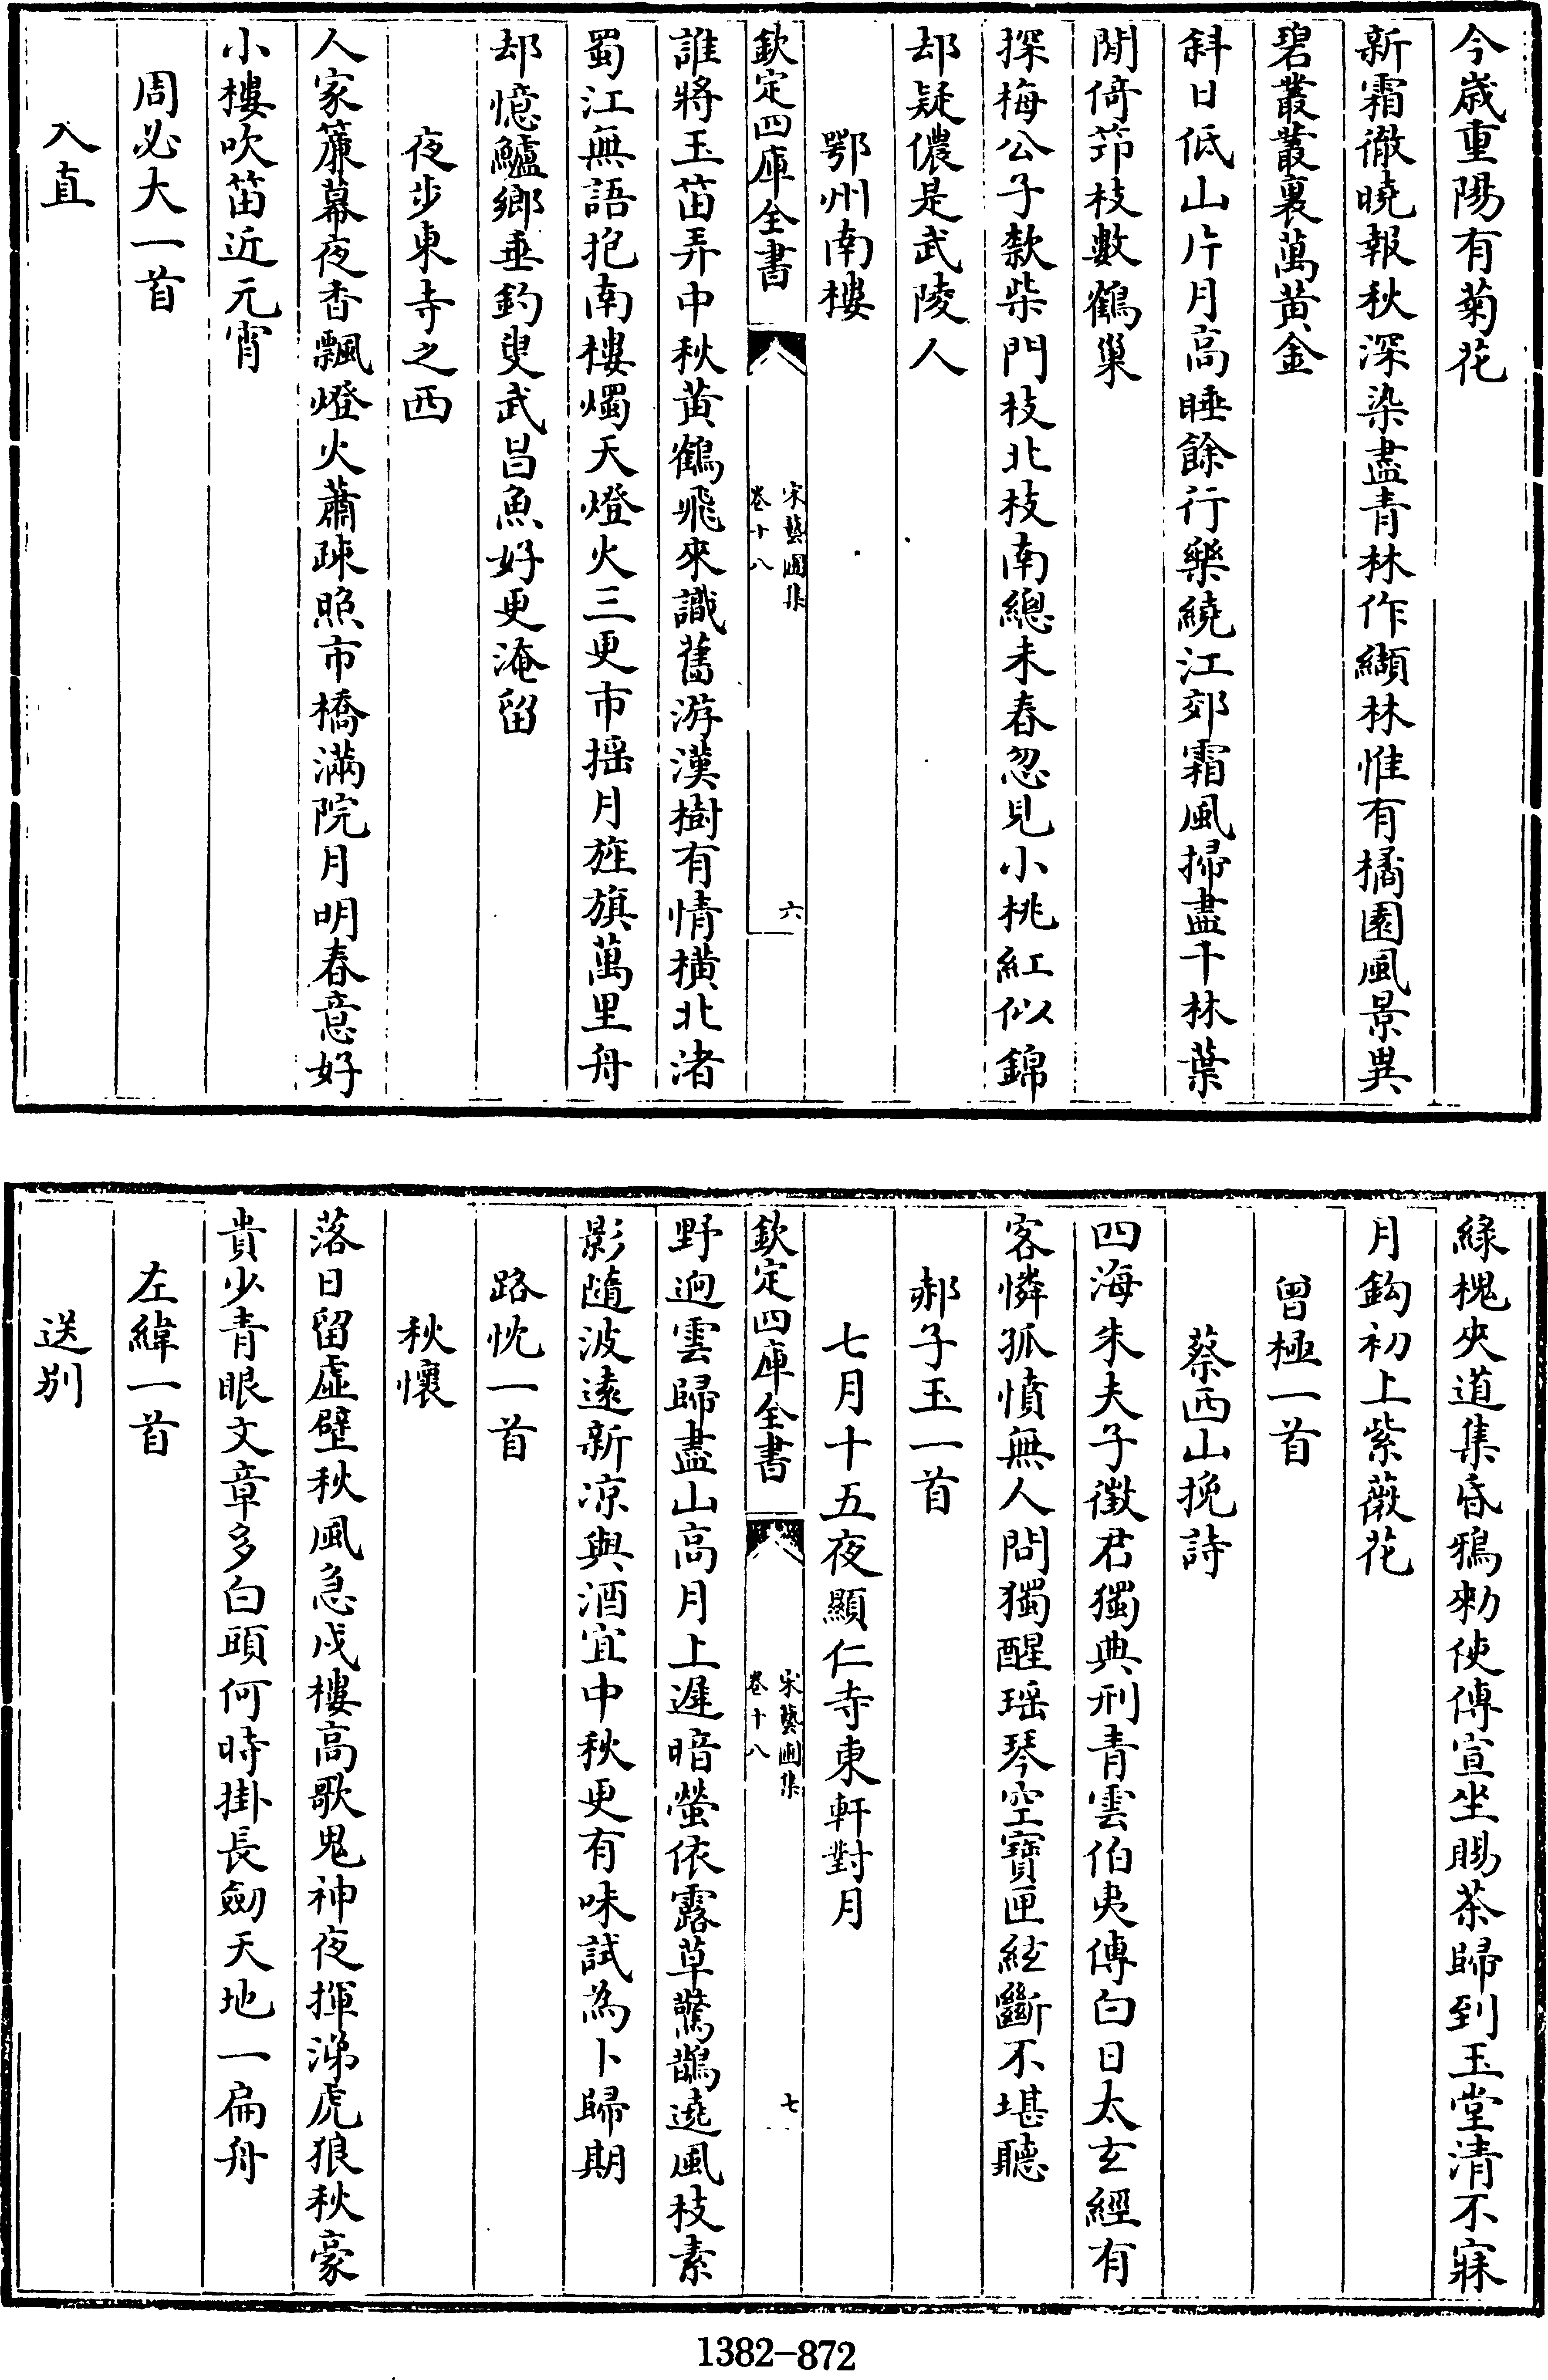 今歳重陽有菊花
新霜徹曉報秋深染盡青林作纈林惟有橘園風景異
碧叢叢裏萬黄金
斜日低山片月高睡餘行藥繞江郊霜風掃盡千林葉
閒倚笻枝數鶴巢
探梅公子欵柴門枝北枝南總未春忽見小桃紅似錦
却疑儂是武陵人
鄂州南樓
欽定四庫全書
宋藝圃集
卷十八
六
誰將玉笛弄中秋黄鶴飛來識舊游漢樹有情横北渚
蜀江無語抱南樓燭天燈火三更市揺月旌旗萬里舟
却憶鱸鄉垂釣叟武昌魚好更淹留
夜步東寺之西
人家簾幕夜香飄燈火蕭疎照市橋滿院月明春意好
小樓吹笛近元宵
周必大一首
入直
緑槐夾道集昏鴉勑使傳宣坐賜茶歸到玉堂清不寐
月鈎初上紫薇花
曾極一首
蔡西山挽詩
四海朱夫子徵君獨典刑青雲伯夷傳白日太玄經有
客憐孤憤無人問獨醒瑶琴空寶匣絃斷不堪聽
郝子玉一首
七月十五夜顯仁寺東軒對月
欽定四庫全書
宋藝圃集
卷十八
七
野逈雲歸盡山高月上遲暗螢依露草驚鵲遶風枝素
影隨波遠新凉與酒宜中秋更有味試為卜歸期
路忱一首
秋懷
落日留虛壁秋風急戍樓高歌鬼神夜揮涕虎狼秋豪
貴少青眼文章多白頭何時掛長劒天地一扁舟
左緯一首
送别
1382-872